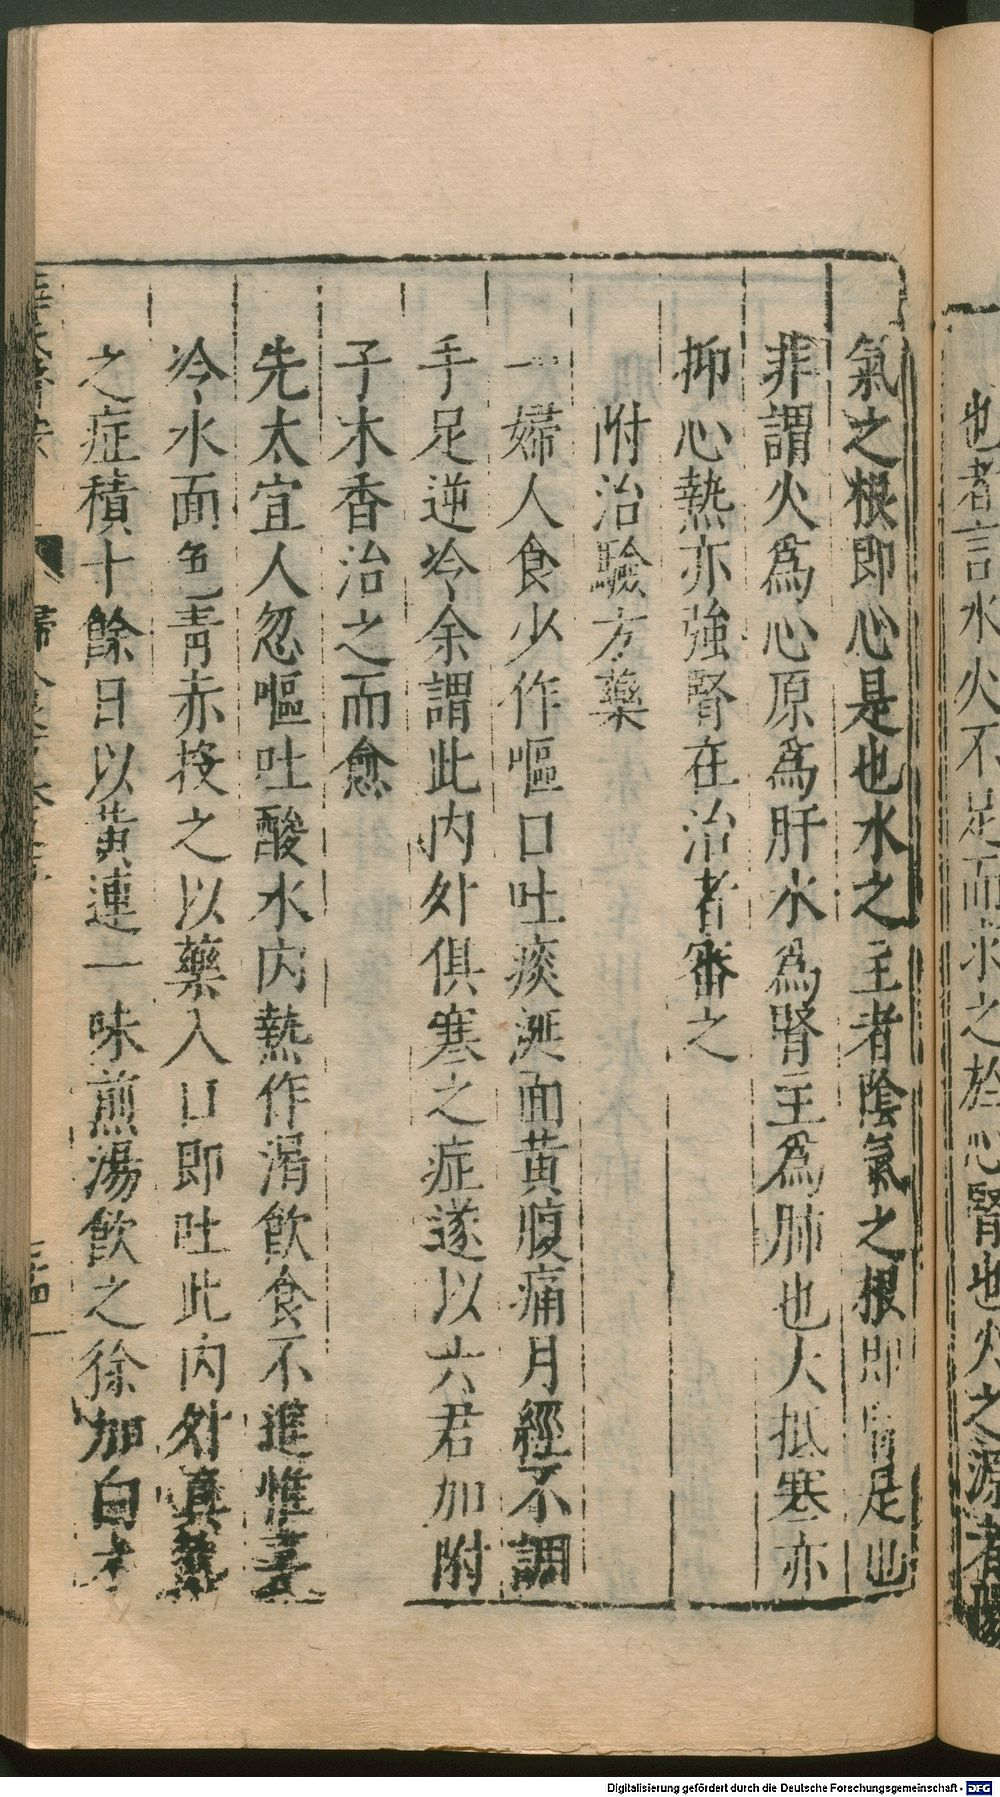 也者言水火不足而求之於心腎也火之源者陽
氣之根即心是也水之主者陰氣之根即腎是也
非謂火爲心原爲肝水爲腎主爲肺也大抵寒亦
抑心熱亦強腎在治者審之
附治驗方藥
一婦人食少作嘔口吐痰涎面黄腹痛月經不調
手足逆冷余謂此内外俱寒之症遂以六君加附
子木香治之而愈
先太宜人忽嘔吐酸水内熱作渴飲食不進惟喜
冷水面色青赤投之以藥入口即吐此内外真熱
之症積十餘日以黄連一味煎湯飲之徐加白术
Digitalisierung gefördert durch die Deutsche Forschungsgemeinschaft - DFG